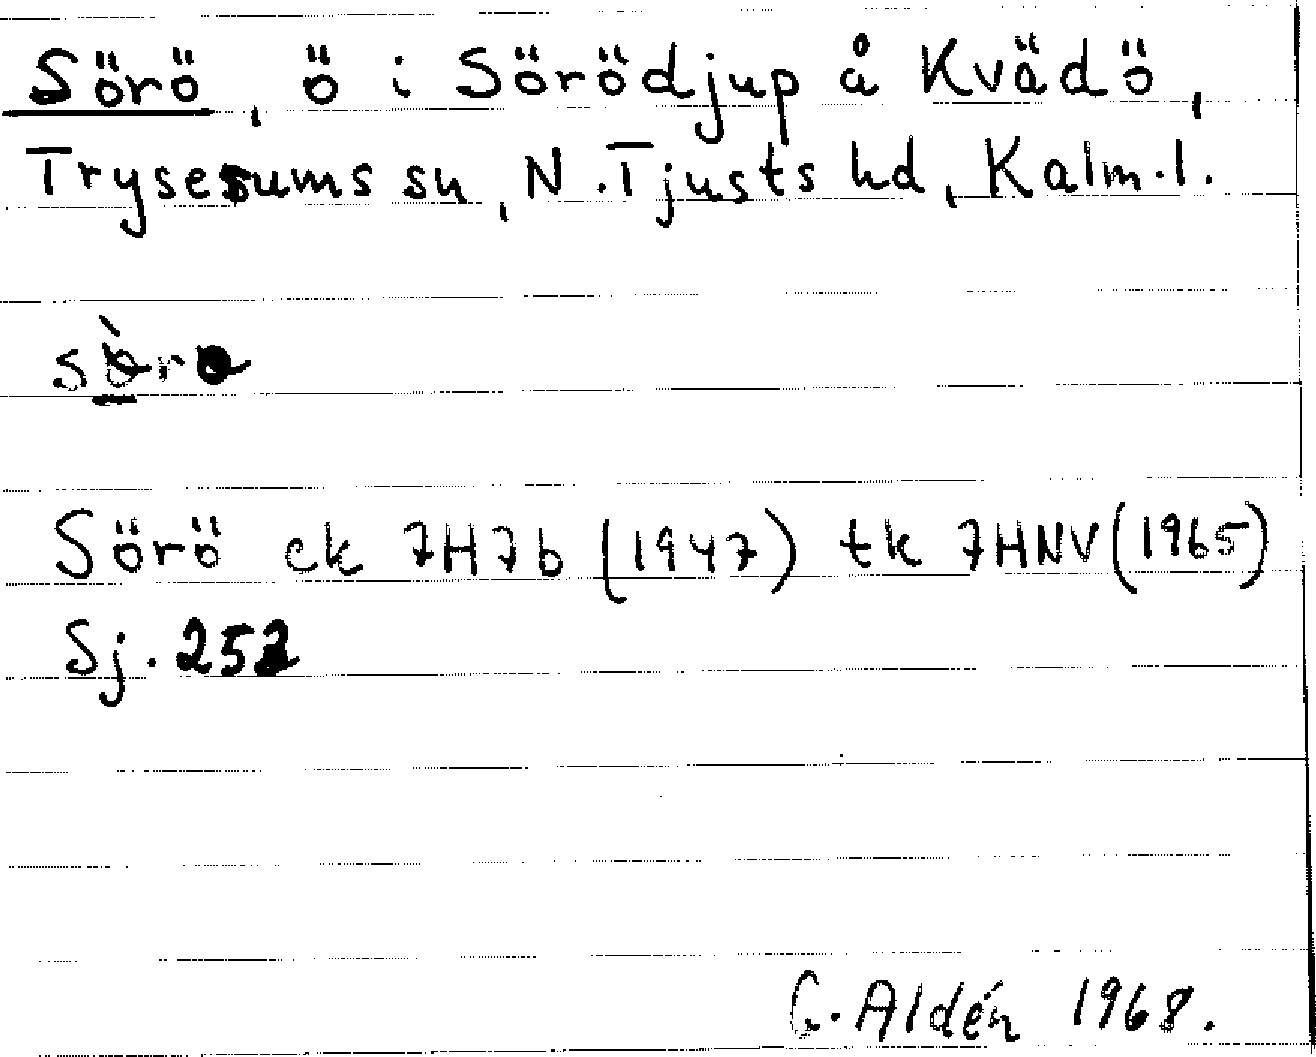 Sörö, ö i Sörödjup å Kvädö,
Trysesums sn, N. Tjusts hd, Kalm.l.
Sörö ek 7H7b (1947) tk 7HNV (1965)
Sj. 252
G. Aldén 1968.